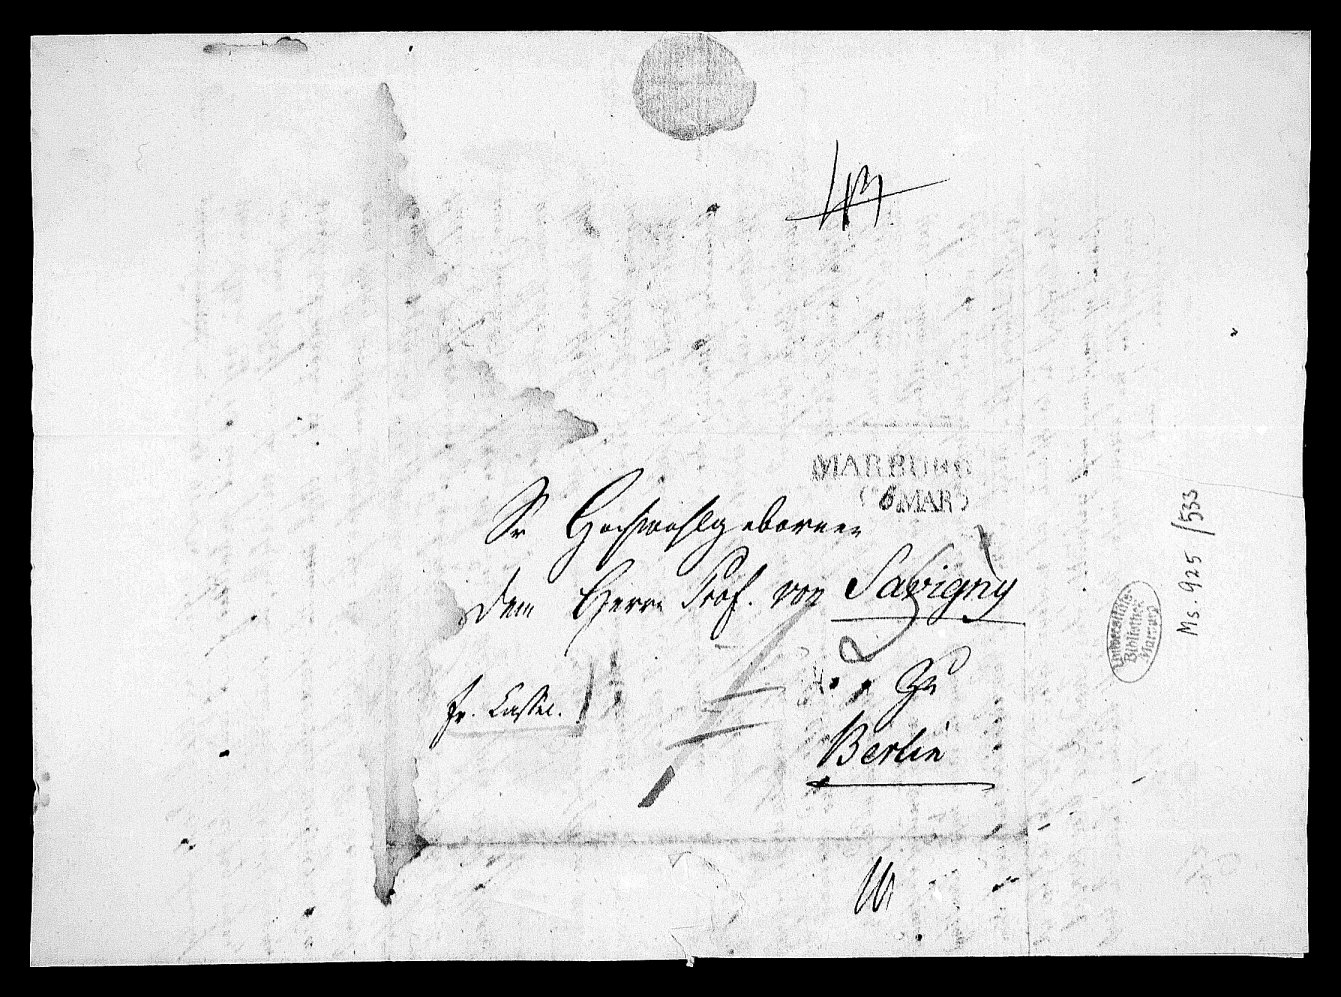 MARBURG
6 MAR
Sr Hochwohlgeboren
dem Herrn Prof. von Savigny
zu
fr. Cassel.
Berlin
Ms. 925/533
Universitäts-
Bibliothek
Marburg